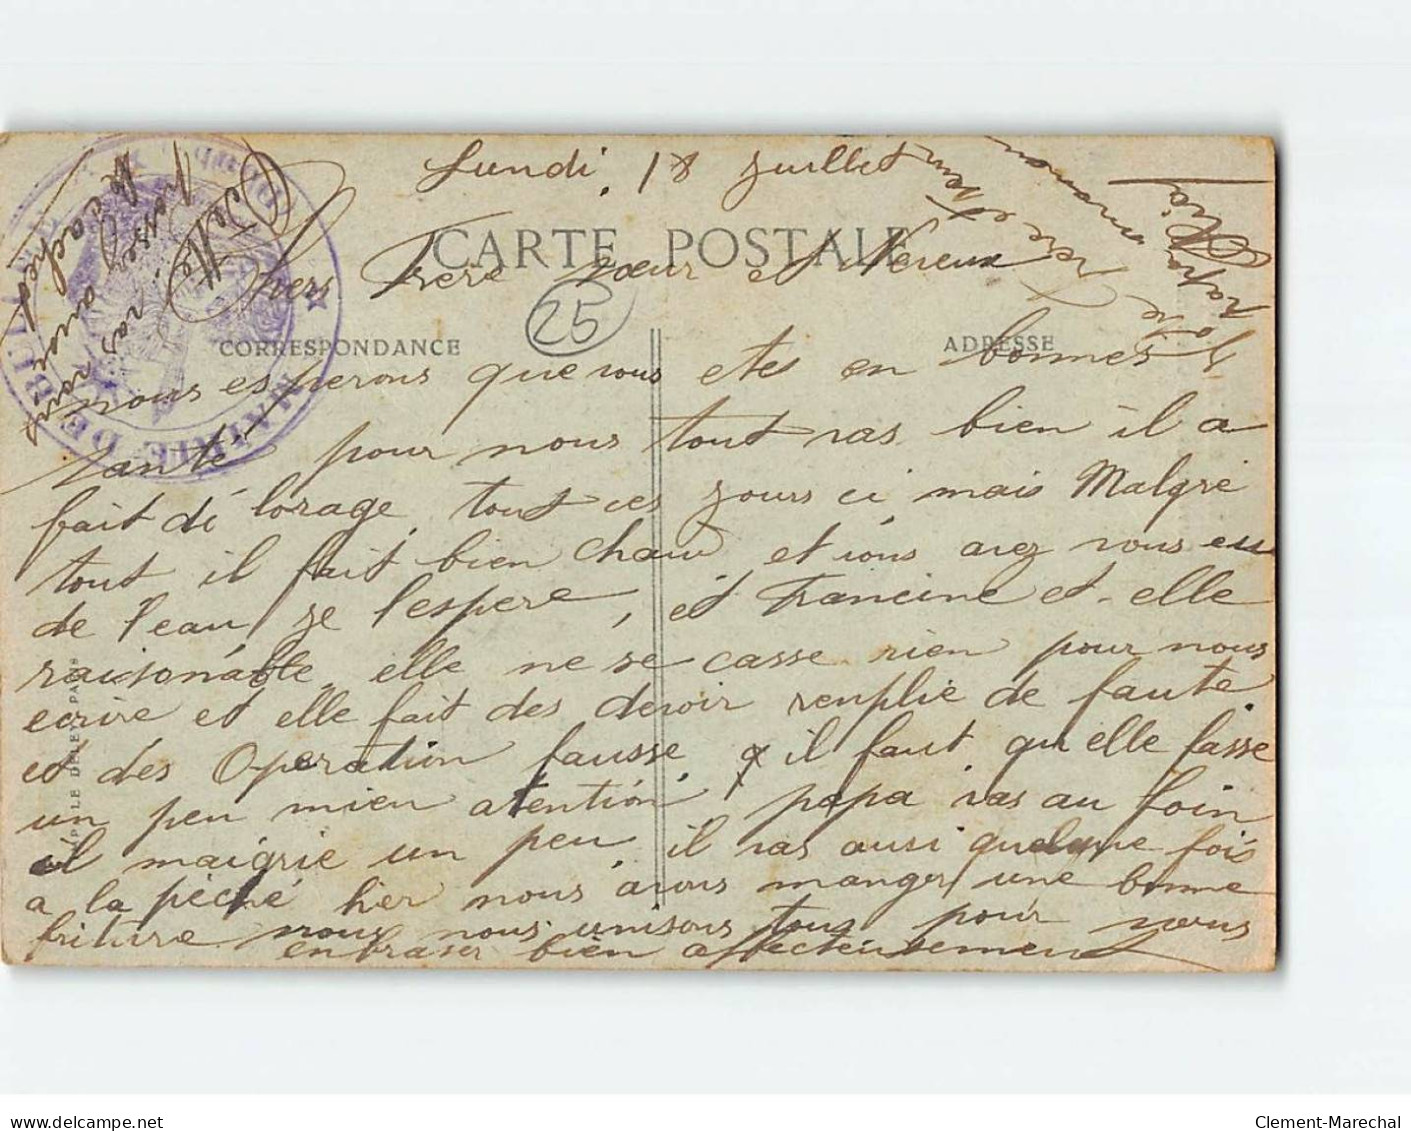 Lundi 18 Juillet
CARTE POSTALE
Chers Frere sœur et Nereux
25
CORRESPONDANCE
ADRESSE
nous esperons que vous etes en bonnes
santé pour nous tout vas bien il a
fait dé lorage tout ces jours ci mais Malgré
tout il fait bien chaud et vous avez vous eu
de l'eau je l'espere, et Francine et-elle
raisonable elle ne se casse rien pour nous
ecrire et elle fait des devoir remplie de faute
et des Operation fausse il faut qu'elle fasse
un peu mieu atention papa vas au foin
il maigrie un peu, il vas ausi quelque fois
a la pèche hier nous avons manger une bonne
friture nous nous unisons tous pour vous
enbraser bien affectueusement
Votre frere et sœur
maman
papa
Odette
vas
pour vous
MAIRIE DE
PARIS
Clement-Marechal